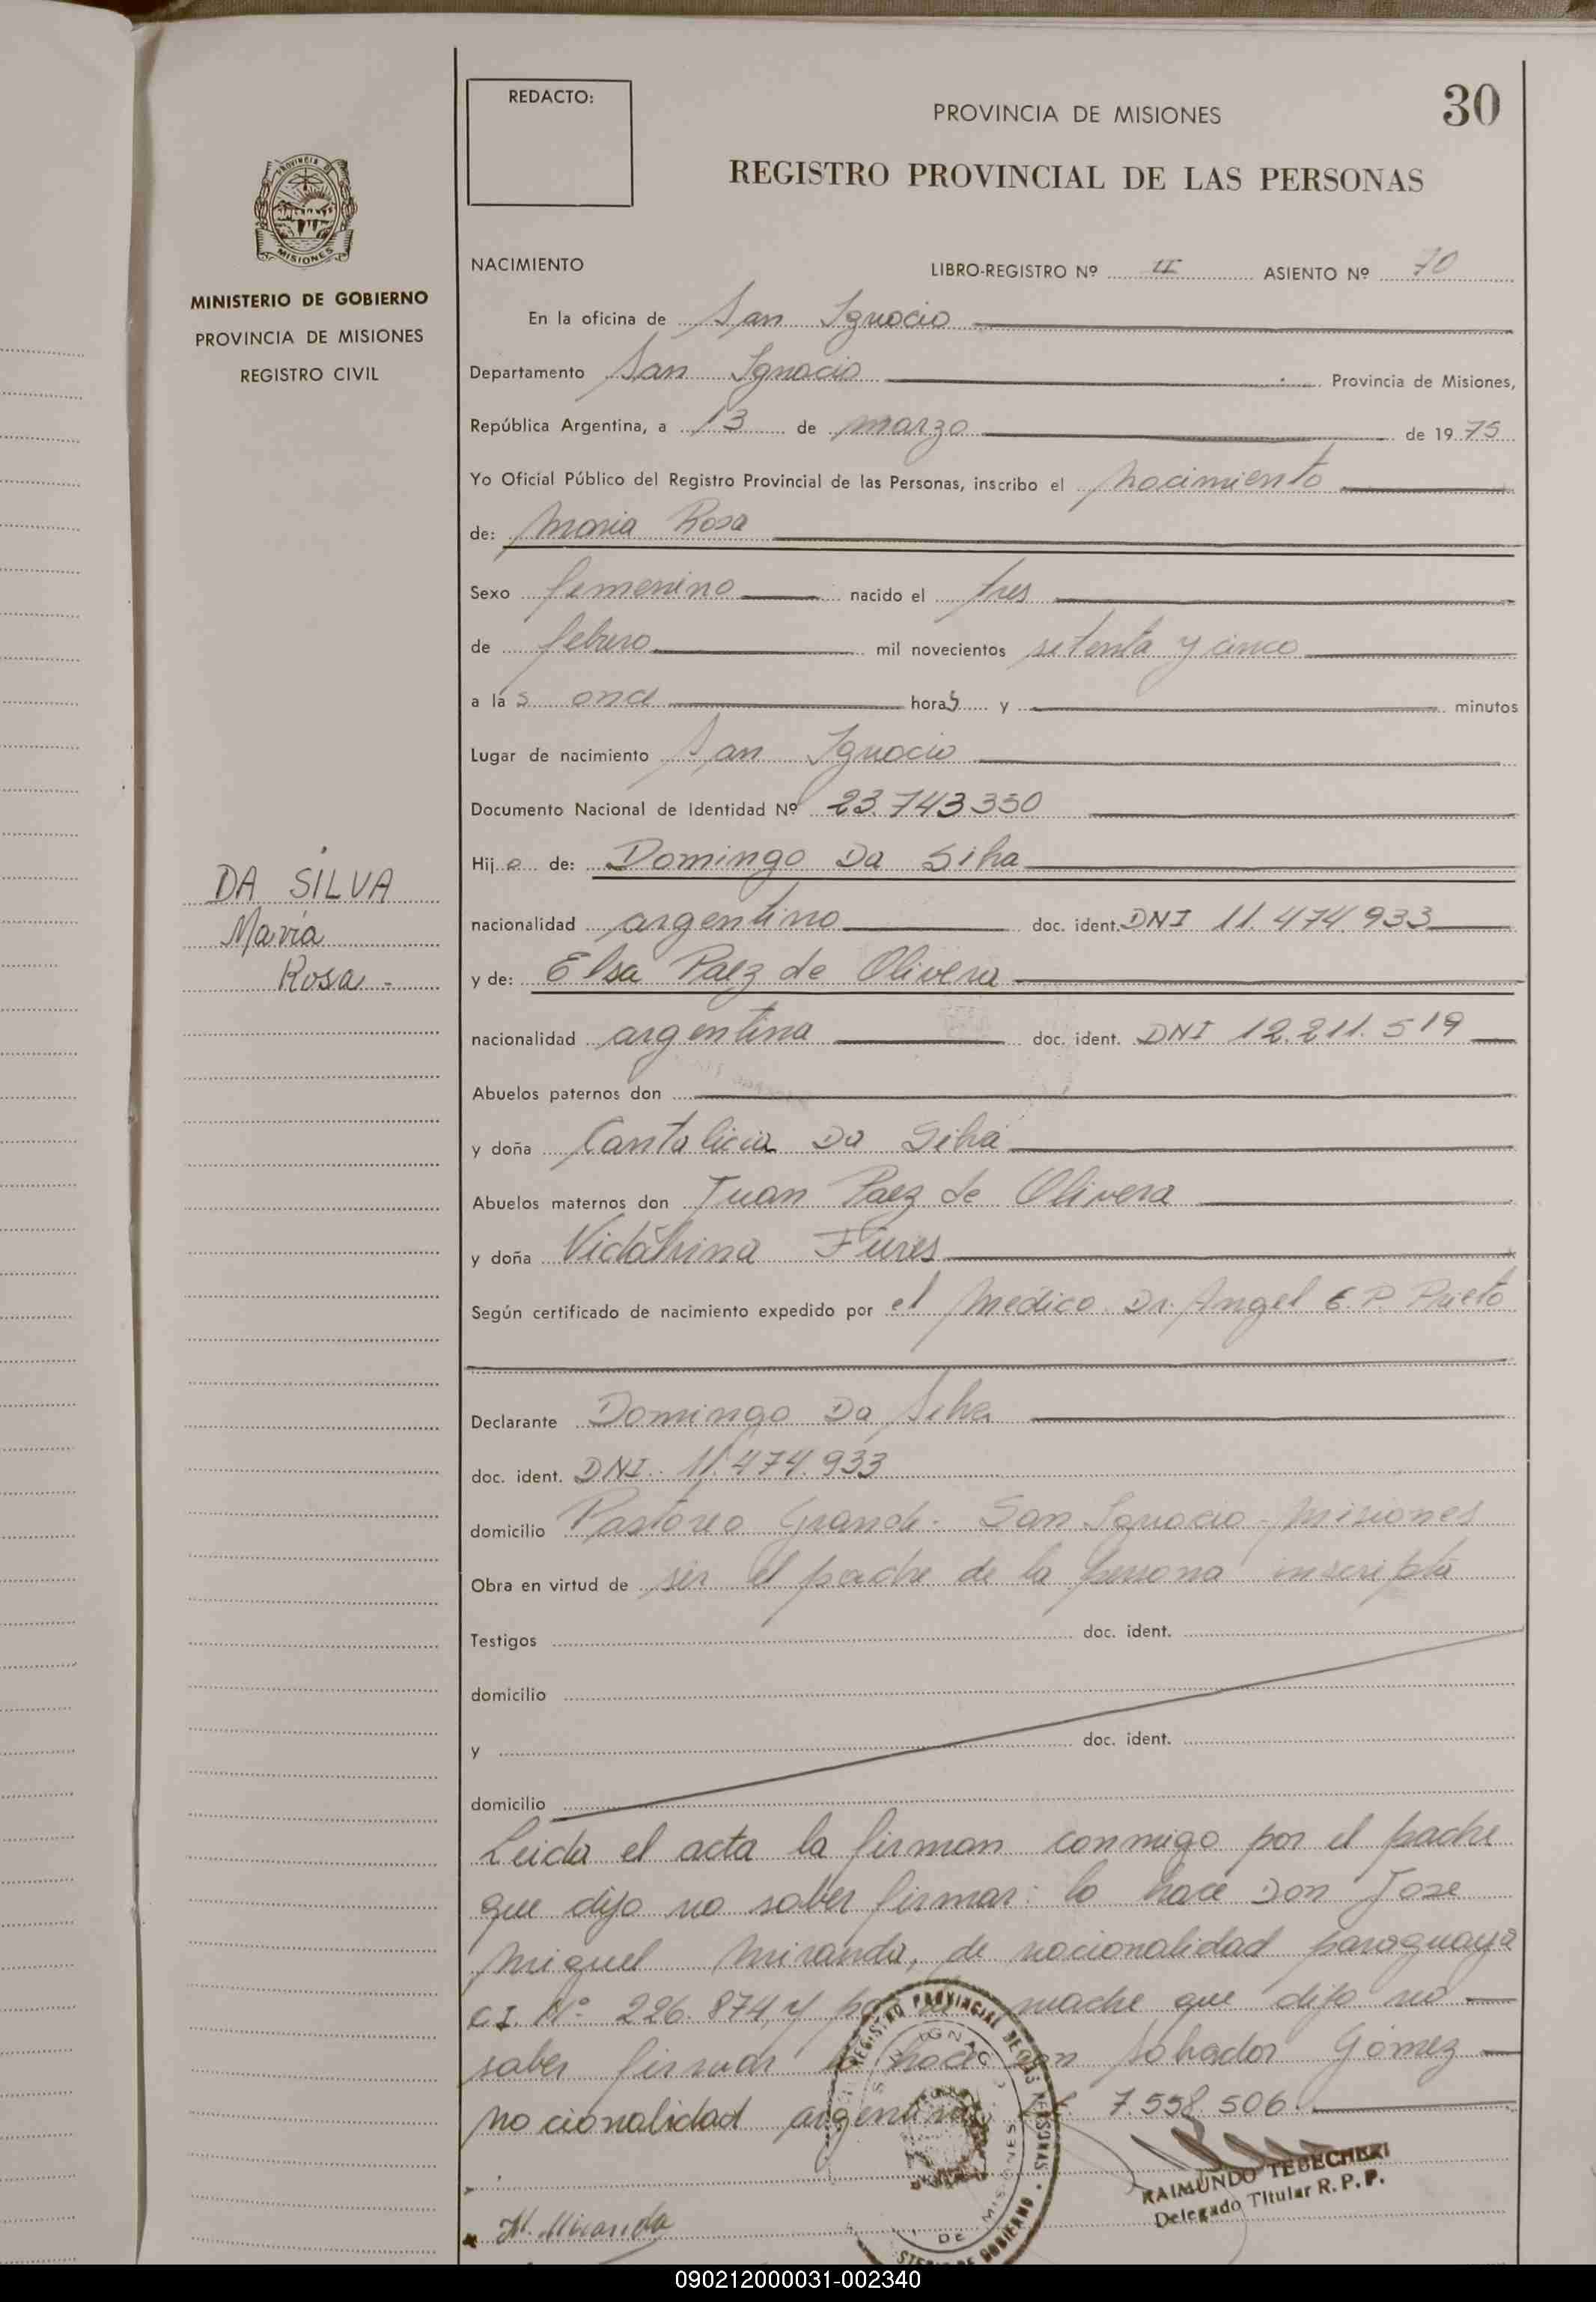 REDACTO:
PROVINCIA DE MISIONES
30
REGISTRO PROVINCIAL DE LAS PERSONAS
MISIONES
MINISTERIO DE GOBIERNO
PROVINCIA DE MISIONES
REGISTRO CIVIL
NACIMIENTO LIBRO-REGISTRO Nº II ASIENTO Nº 70
En la oficina de San Ignacio
Departamento San Ignacio Provincia de Misiones,
República Argentina, a 13 de marzo de 1975
Yo Oficial Público del Registro Provincial de las Personas, inscribo el nacimiento
de: Maria Rosa
Sexo femenino nacido el tres
de febrero mil novecientos setenta y cinco
a las once horas y minutos
Lugar de nacimiento San Ignacio
Documento Nacional de Identidad Nº 23.743.350
Hija de: Domingo Da Silva
DA SILVA
María
Rosa -
nacionalidad argentino doc. ident. DNI 11.474.933
y de: Elsa Paez de Olivera
nacionalidad argentina doc. ident. DNI 12.211.519
Abuelos paternos don
y doña Cantalicia Da Silva
Abuelos maternos don Juan Paez de Olivera
y doña
Según certificado de nacimiento expedido por el Medico Dr. Angel E. P. Prieto
Declarante Domingo Da Silva
doc. ident. DNI. 11.474.933
domicilio Pastoreo Grande - San Ignacio - Misiones
Obra en virtud de ser el padre de la persona inscripta
Testigos doc. ident.
domicilio
y doc. ident.
domicilio
Leida el acta la firman conmigo por el padre
que dijo no saber firmar: lo hace Don Jose
Miguel Miranda, de nacionalidad paraguaya
C.I. Nº 226.874, y por la madre que dijo no
saber firmar lo hace Don Salvador Gómez
nacionalidad argentina 7.558.506
REGISTRO PROVINCIAL DE LAS PERSONAS
DE MISIONES
RAIMUNDO TEBECHERI
Delegado Titular R. P. P.
M. Miranda
090212000031-002340